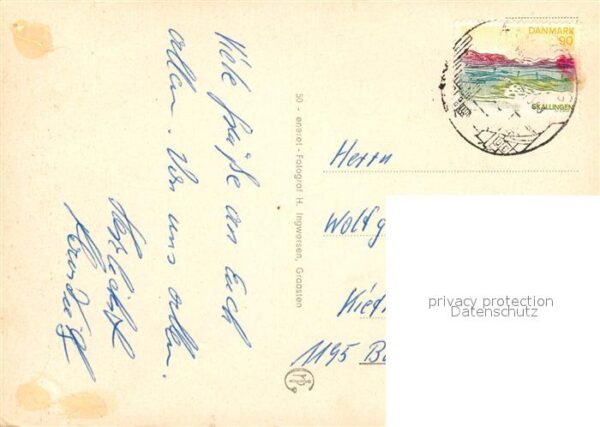 Viele Grüße an Euch
allen. Von uns allen.
Herzlichst
50 - eneret - Fotograf H. Ingworsen, Graasten
DANMARK
90
SKALLINGEN
Herrn
Wolfg
1195 B
privacy protection
Datenschutz